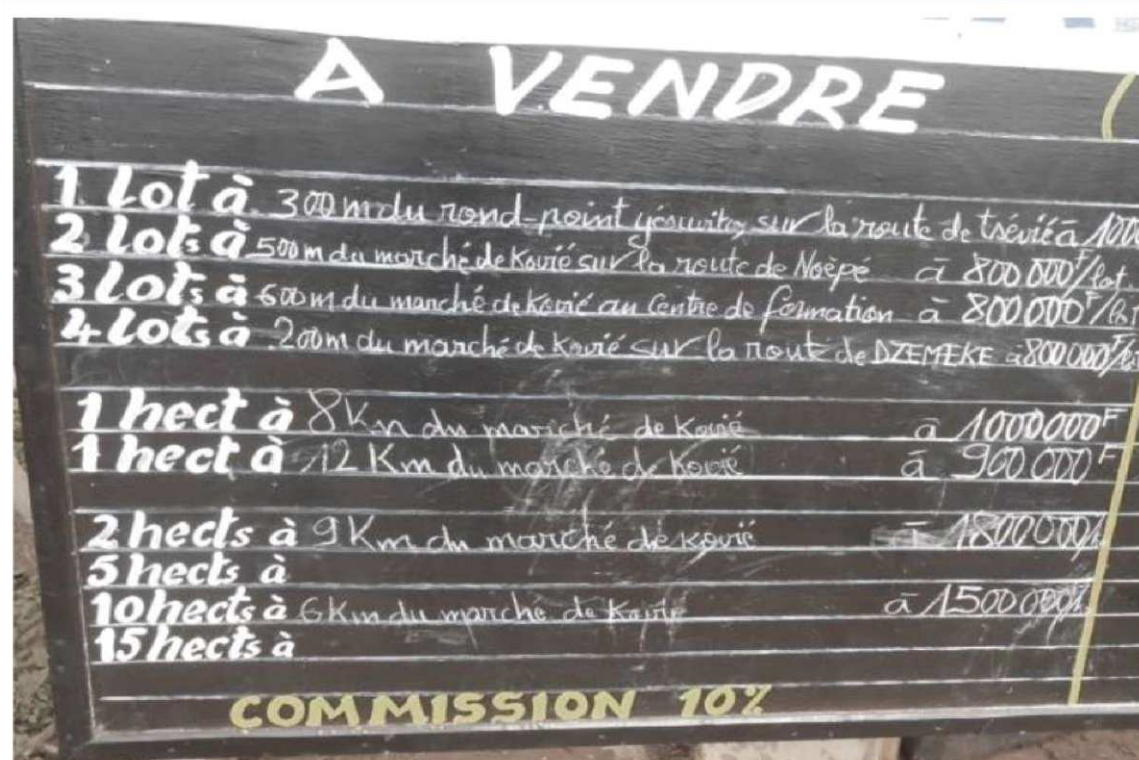 A VENDRE
1 Lot à 300m du rond-point sur la route de tsévié à
2 Lots à 500m du marché de Kovié sur la route de Noèpé à 800 000F/lot
3 Lots à 600m du marché de Kovié au Centre de formation à 800 000F/lot
4 Lots à 200m du marché de Kovié sur la route de DZEMEKE à 800 000F
1 hect à 8Km du marché de Kovié à 1000000F
1 hect à 12 Km du marché de Kovié à 900.000F
2 hects à 9Km du marché de Kovié à 1800000/h
5 hects à
10 hects à 6Km du marché de Kovié à 1500 000/h
15 hects à
COMMISSION 10%